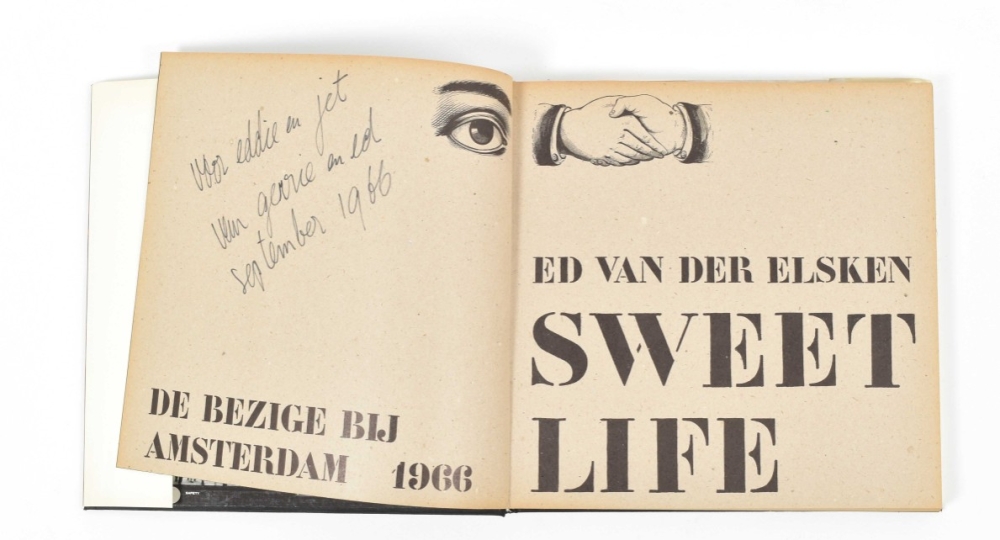 voor eddie en jet
van gerrie en ed
september 1966
DE BEZIGE BIJ
AMSTERDAM 1966
ED VAN DER ELSKEN
SWEET
LIFE